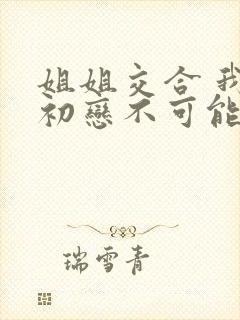 姐姐交合 我
初戀不可能
瑞雪青